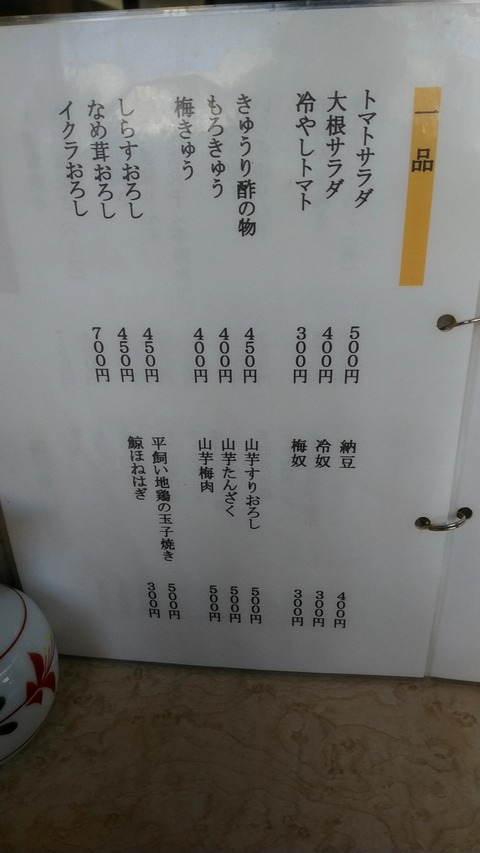 一品
トマトサラダ 500円
大根サラダ 400円
冷やしトマト 300円
きゅうり酢の物 450円
もろきゅう 400円
梅きゅう 400円
しらすおろし 450円
なめ茸おろし 450円
イクラおろし 700円
納豆 400円
冷奴 300円
梅奴 300円
山芋すりおろし 500円
山芋たんざく 500円
山芋梅肉 500円
平飼い地鶏の玉子焼き 500円
鯨ほねはぎ 300円